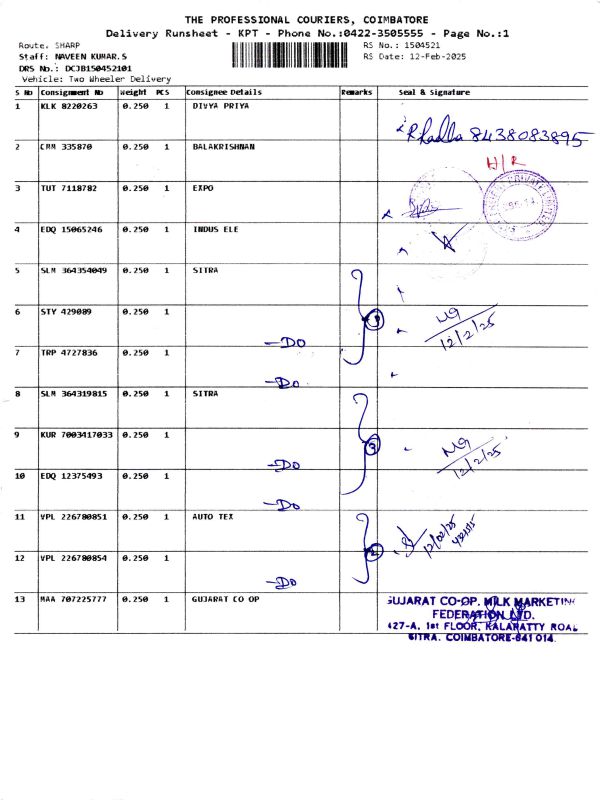 THE PROFESSIONAL COURIERS, COIMBATORE
Delivery Runsheet - KPT - Phone No.:0422-3505555 - Page No.:1
Route. SHARP
RS No.: 1504521
Staff: NAVEEN KUMAR.S
RS Date: 12-Feb-2025
DRS No.: DCJB150452101
Vehicle: Two Wheeler Delivery
S No Consignment No Weight PCS Consignee Details Remarks Seal & Signature
1 KLK 8220263 0.250 1 DIVYA PRIYA
8438083895
2 CMM 335870 0.250 1 BALAKRISHNAN
H/R
3 TUT 7118782 0.250 1 EXPO
4 EDQ 15065246 0.250 1 INDUS ELE
5 SLM 364354049 0.250 1 SITRA
6 STY 429089 0.250 1
12/2/25
-Do
7 TRP 4727836 0.250 1
-Do
8 SLM 364319815 0.250 1 SITRA
9 KUR 7003417033 0.250 1
3
12/2/25
-Do
10 EDQ 12375493 0.250 1
-Do
11 VPL 226780851 0.250 1 AUTO TEX
12/02/25
2
12 VPL 226780854 0.250 1
-Do
13 MAA 707225777 0.250 1 GUJARAT CO OP
GUJARAT CO-OP. MILK MARKETING
FEDERATION LTD.
427-A, 1st FLOOR, KALAPATTY ROAD
SITRA. COIMBATORE-641 014.